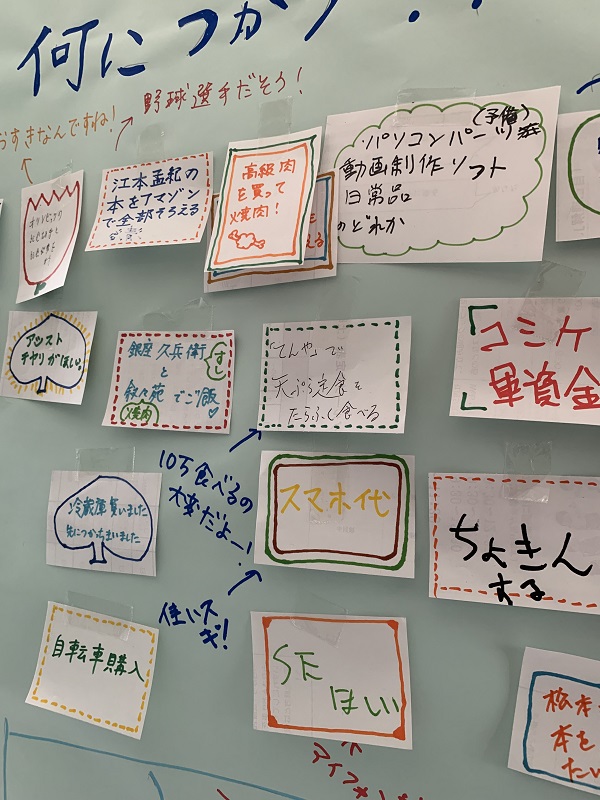 何につかう??
野球選手だそう！
おすきなんですね！
江本孟紀の
本をアマゾン
で全部そろえる
高級肉
を買って
焼肉！
える
パソコンパーツ
(予備)
動画制作ソフト
日常品
のどれか
アシスト
チャリがほしい。
銀座 久兵衛
すし
と
叙々苑 でご飯
焼肉
「てんや」で
天ぷら定食を
たらふく食べる
コミケ
軍資金
10万食べるの
大変だよー！
冷蔵庫買いました
先につかっちゃいました
スマホ代
ちょきん
する
使いスギ！
自転車購入
SE
ほしい
松本
本を
たい